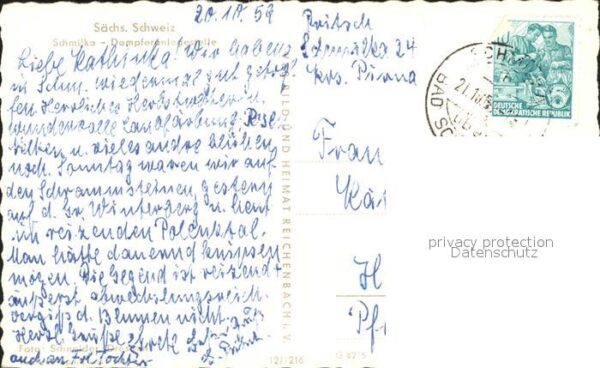 20.10.59
Sächs. Schweiz
Schmilka - Dampferanlegestelle
Liebe Kathinka! Wir haben
in Schm. wieder mal gut getrof-
fen. Herrliches Herbstwetter u.
wundervolle Laubfärbung, Rosen
blühen u. vieles andre blühen
noch. Sonntag waren wir auf
den Schrammsteinen, gestern
auf d. Gr. Winterberg u. heut
im reizenden Polenztal.
Man hätte dauernd knipsen
mögen. Die Gegend ist reizend +
äußerst abwechslungsreich.
Vergiß d. Blumen nicht.
Herzl. Grüße
auch an Frl. Tochter
Foto: Schneider
12/1216 G 8275
BILD UND HEIMAT REICHENBACH i. V.
Pritsch
Schmilka 24
Krs. Pirna
Frau
Kä
H
Pf
DEUTSCHE
DEMOKRATISCHE REPUBLIK
BAD
21.10.5
privacy protection
Datenschutz